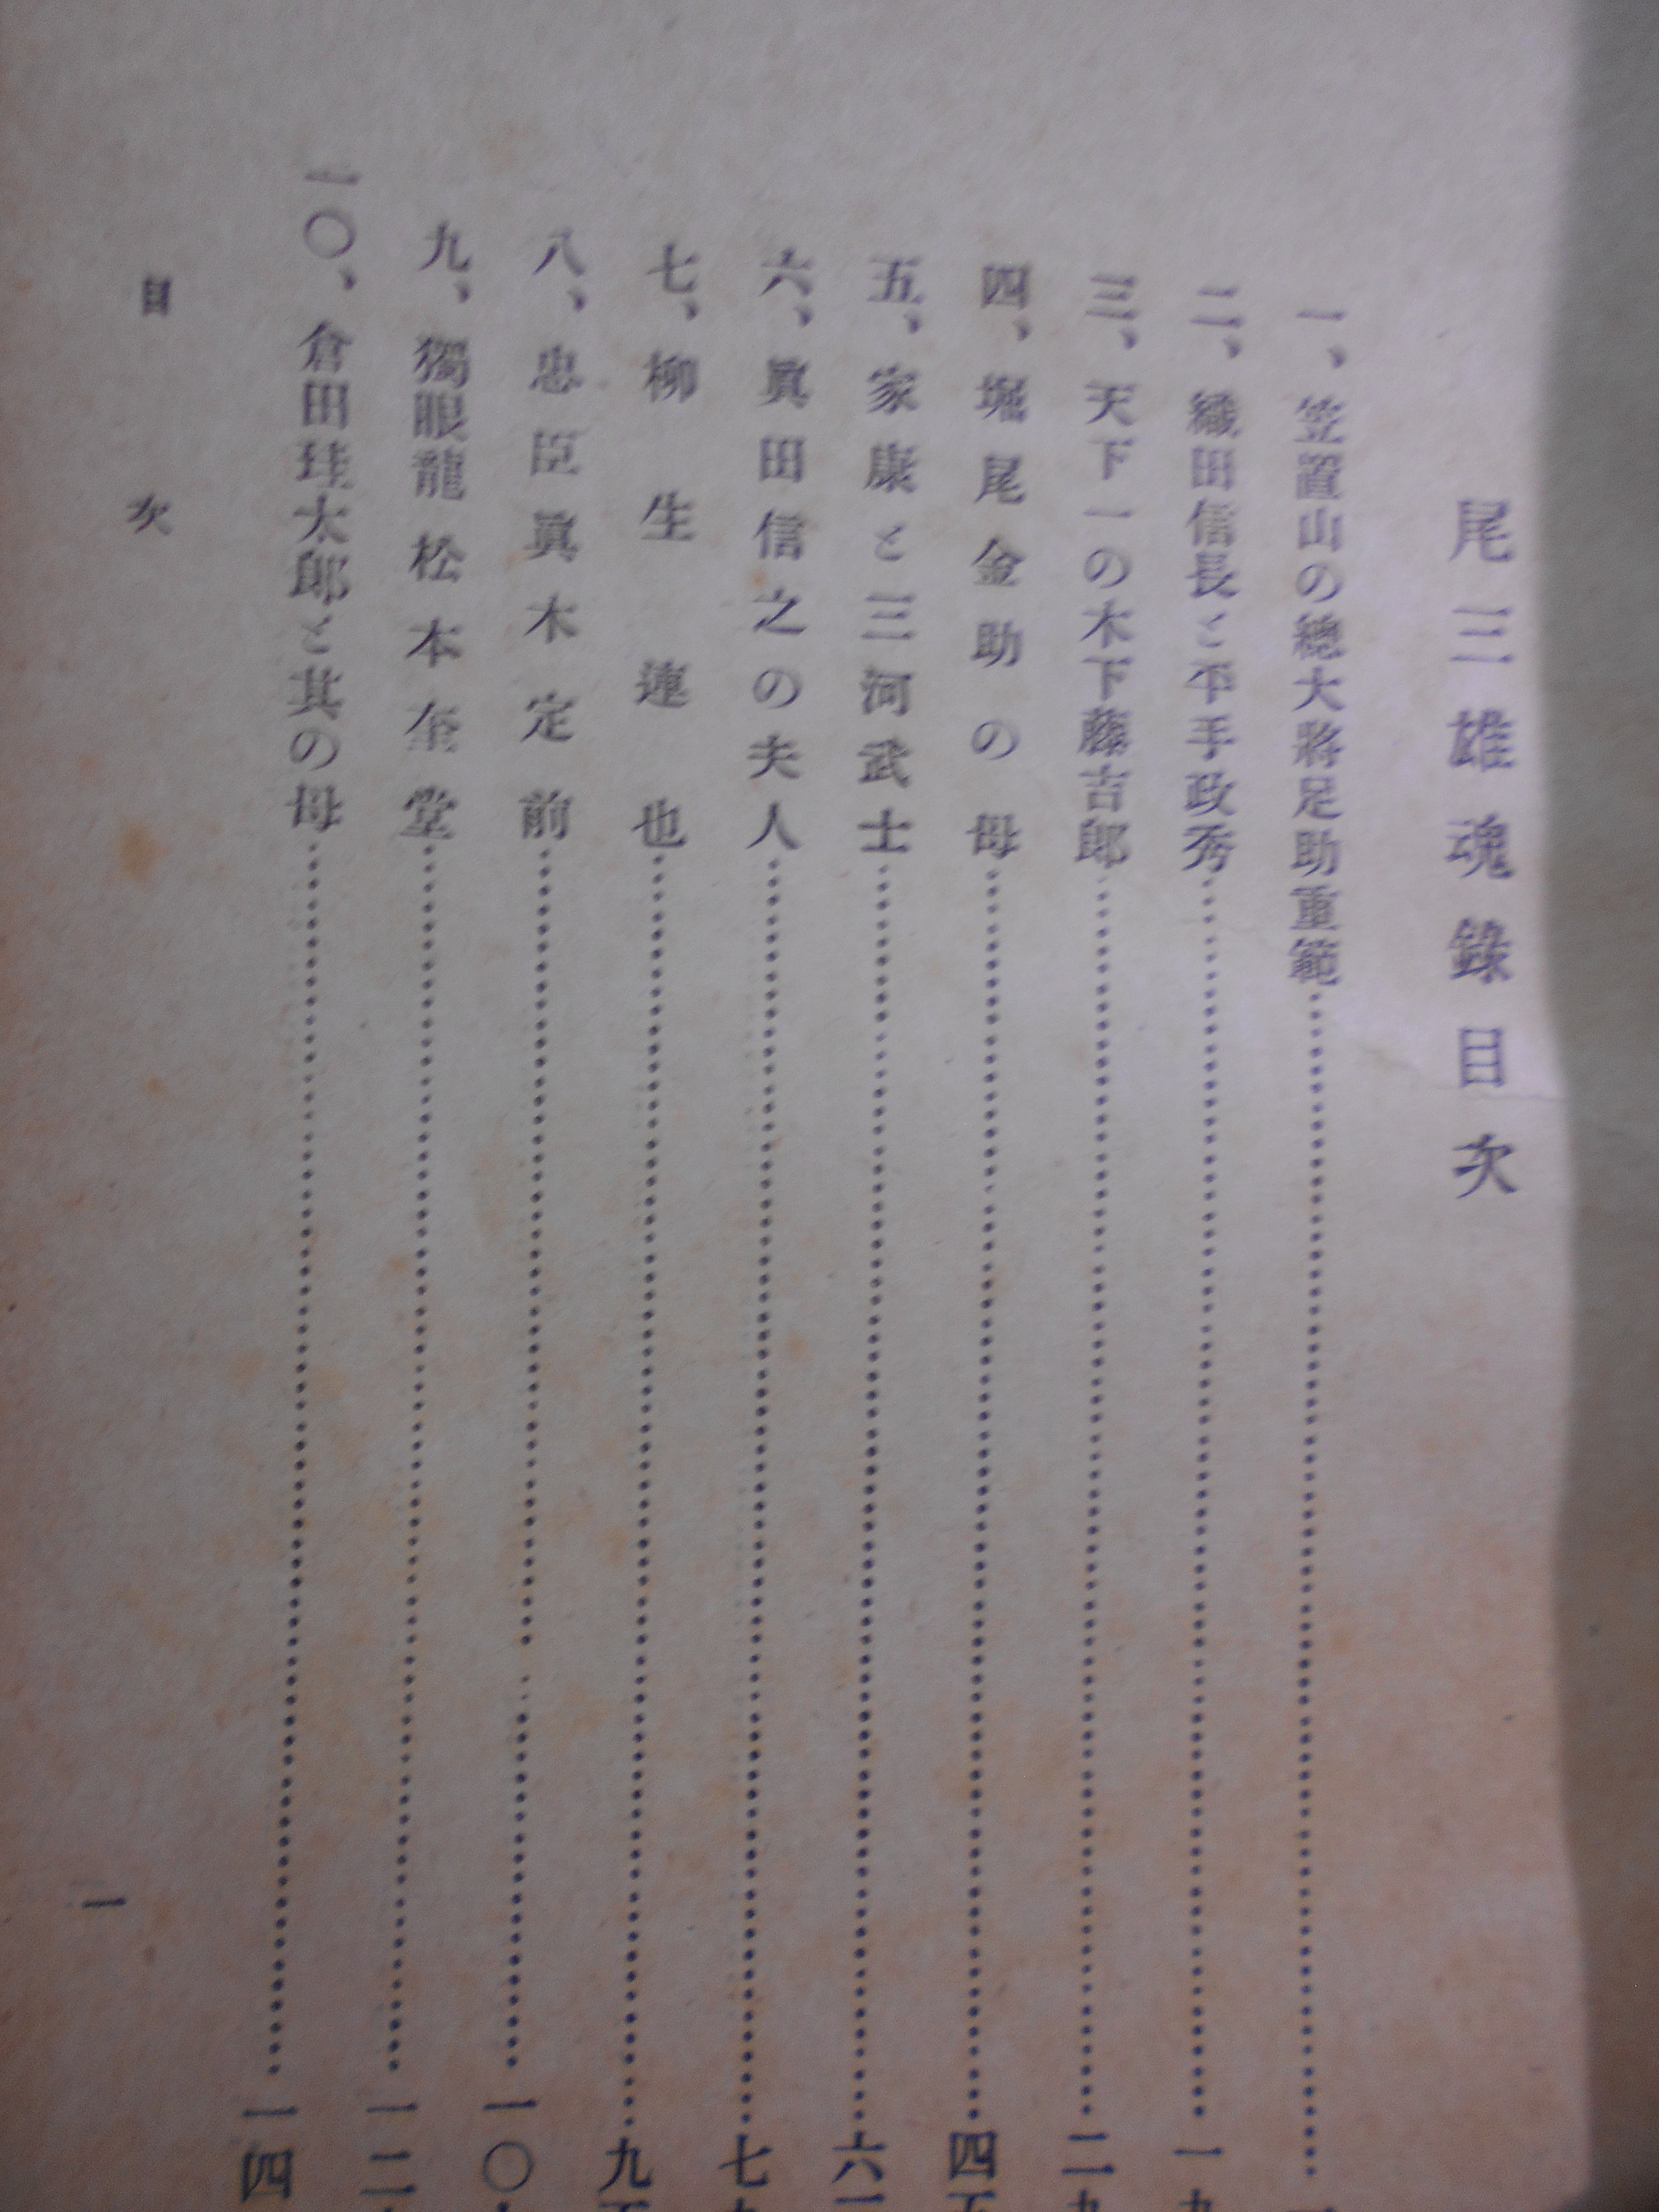 尾三雄魂錄目次
一、笠置山の總大將足助重範……
二、織田信長と平手政秀……一九
三、天下一の木下藤吉郎……二九
四、堀尾金助の母……四五
五、家康と三河武士……六一
六、眞田信之の夫人……七九
七、柳生連也……九五
八、忠臣眞木定前……一〇
九、獨眼龍松本奎堂……一二
一〇、倉田珪太郎と其の母……一四
目次
一